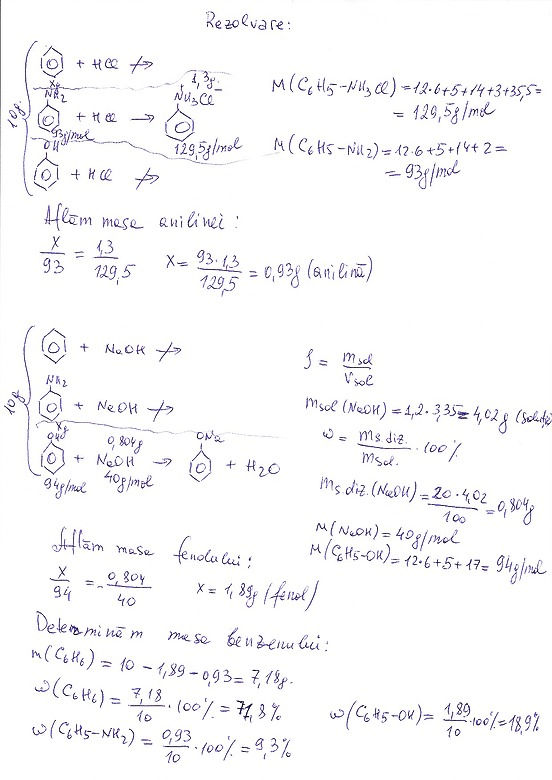 Rezolvare:
10g
+ HCl ↛
xg
NH2
+ HCl →
93g/mol
1,3g
NH3Cl⁻
129,5g/mol
OH
+ HCl ↛
M(C6H5-NH3Cl) = 12·6+5+14+3+35,5=
= 129,5g/mol
M(C6H5-NH2) = 12·6+5+14+2=
= 93g/mol
Aflăm masa anilinei:
x/93 = 1,3/129,5   x = 93·1,3/129,5 = 0,93g (anilină)
10g
+ NaOH ↛
NH2
+ NaOH ↛
xg
OH
94g/mol
+ NaOH →
0,804g
40g/mol
ONa
+ H2O
ρ = msol/Vsol
msol(NaOH) = 1,2·3,35 = 4,02g (soluție
ω = ms.diz./msol. · 100%
ms.diz.(NaOH) = 20·4,02/100 = 0,804g
M(NaOH) = 40g/mol
M(C6H5-OH) = 12·6+5+17 = 94g/mol
Aflăm masa fenolului:
x/94 = 0,804/40   x = 1,89g (fenol)
Determinăm masa benzenului:
m(C6H6) = 10 - 1,89 - 0,93 = 7,18g.
ω(C6H6) = 7,18/10 · 100% = 71,8%
ω(C6H5-NH2) = 0,93/10 · 100% = 9,3%
ω(C6H5-OH) = 1,89/10 · 100% = 18,9%